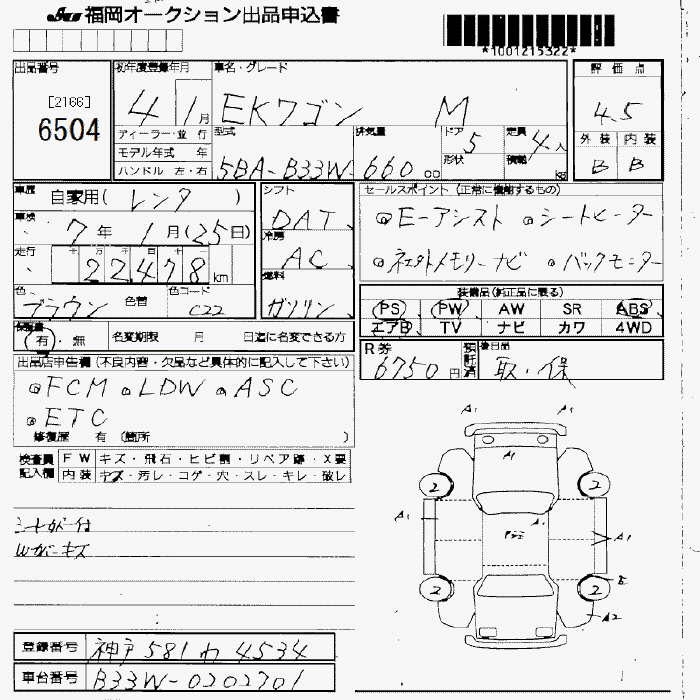 福岡オークション出品申込書
*1001215322*
出品番号
[2166]
6504
初年度登録年月
4年 1月
車名・グレード
EKワゴン M
評価点
4.5
外装 内装
B B
ディーラー・並行
モデル年式 年
ハンドル 左・右
型式
5BA-B33W-660 cc
排気量
ドア 5
形状
定員 4人
積載 kg
車歴 自家用(レンタ)
車検 7年 1月(25日)
走行 22,478 km
色 ブラウン 色替 色コード C22
シフト DAT
冷房 AC
燃料 ガソリン
セールスポイント (正常に機能するもの)
◎Eーアシスト ◎シートヒーター
◎ネクストメモリーナビ ◎バックモニター
装備品(純正品に限る)
PS PW AW SR ABS
エアB TV ナビ カワ 4WD
保証書 有・無 名変期限 月 日迄に名変できる方
R券 6750円 預託済
後日品 取・保
出品店申告欄(不良内容・欠品など具体的に記入して下さい)
◎FCM ◎LDW ◎ASC
◎ETC
修復歴 有 (箇所 )
検査員記入欄
FW キズ・飛石・ヒビ割・リペア跡・X要
内装 キズ・汚レ・コゲ・穴・スレ・キレ・破レ
シートカバー付
Wカバーキズ
A1 A1
A1
2 2
A1 A1 A1
2 2
E
A2
登録番号 神戸 581 わ 4534
車台番号 B33W-0202701